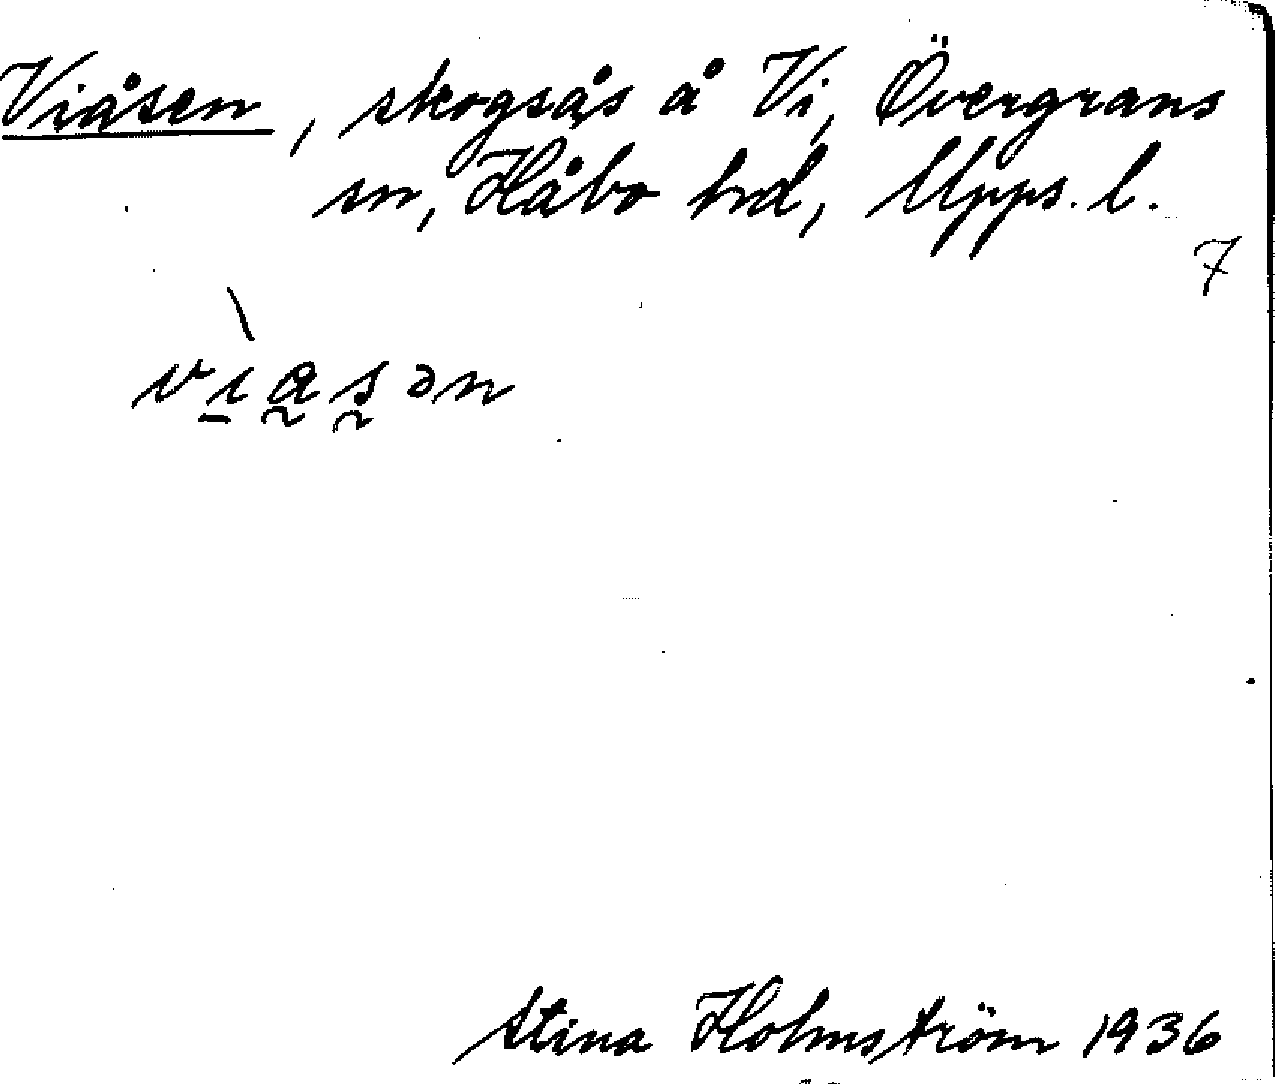 Viåsen, skogsås å Vi, Övergrans
sn, Håbo hd, Upps. l.
7
Stina Holmström 1936